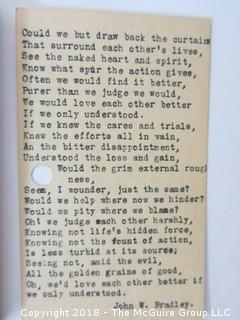 Could we but draw back the curtains
That surround each other's lives,
See the naked heart and spirit,
Know what spur the action gives,
Often we would find it better,
Purer than we judge we would,
We would love each other better
If we only understood.
If we knew the cares and trials,
Knew the efforts all in vain,
An the bitter disappointment,
Understood the loss and gain,
Would the grim external rough
ness,
Seem, I wonder, just the same?
Would we help where now we hinder?
Would we pity where we blame?
Oh! we judge each other harshly,
Knowing not life's hidden force,
Knowing not the fount of action,
Is less turbid at its source;
Seeing not, amid the evil,
All the golden grains of good,
Oh, we'd love each other better if
we only understood.
John W. Bradley.
Copyright 2018 - TimeCapsulePress.com